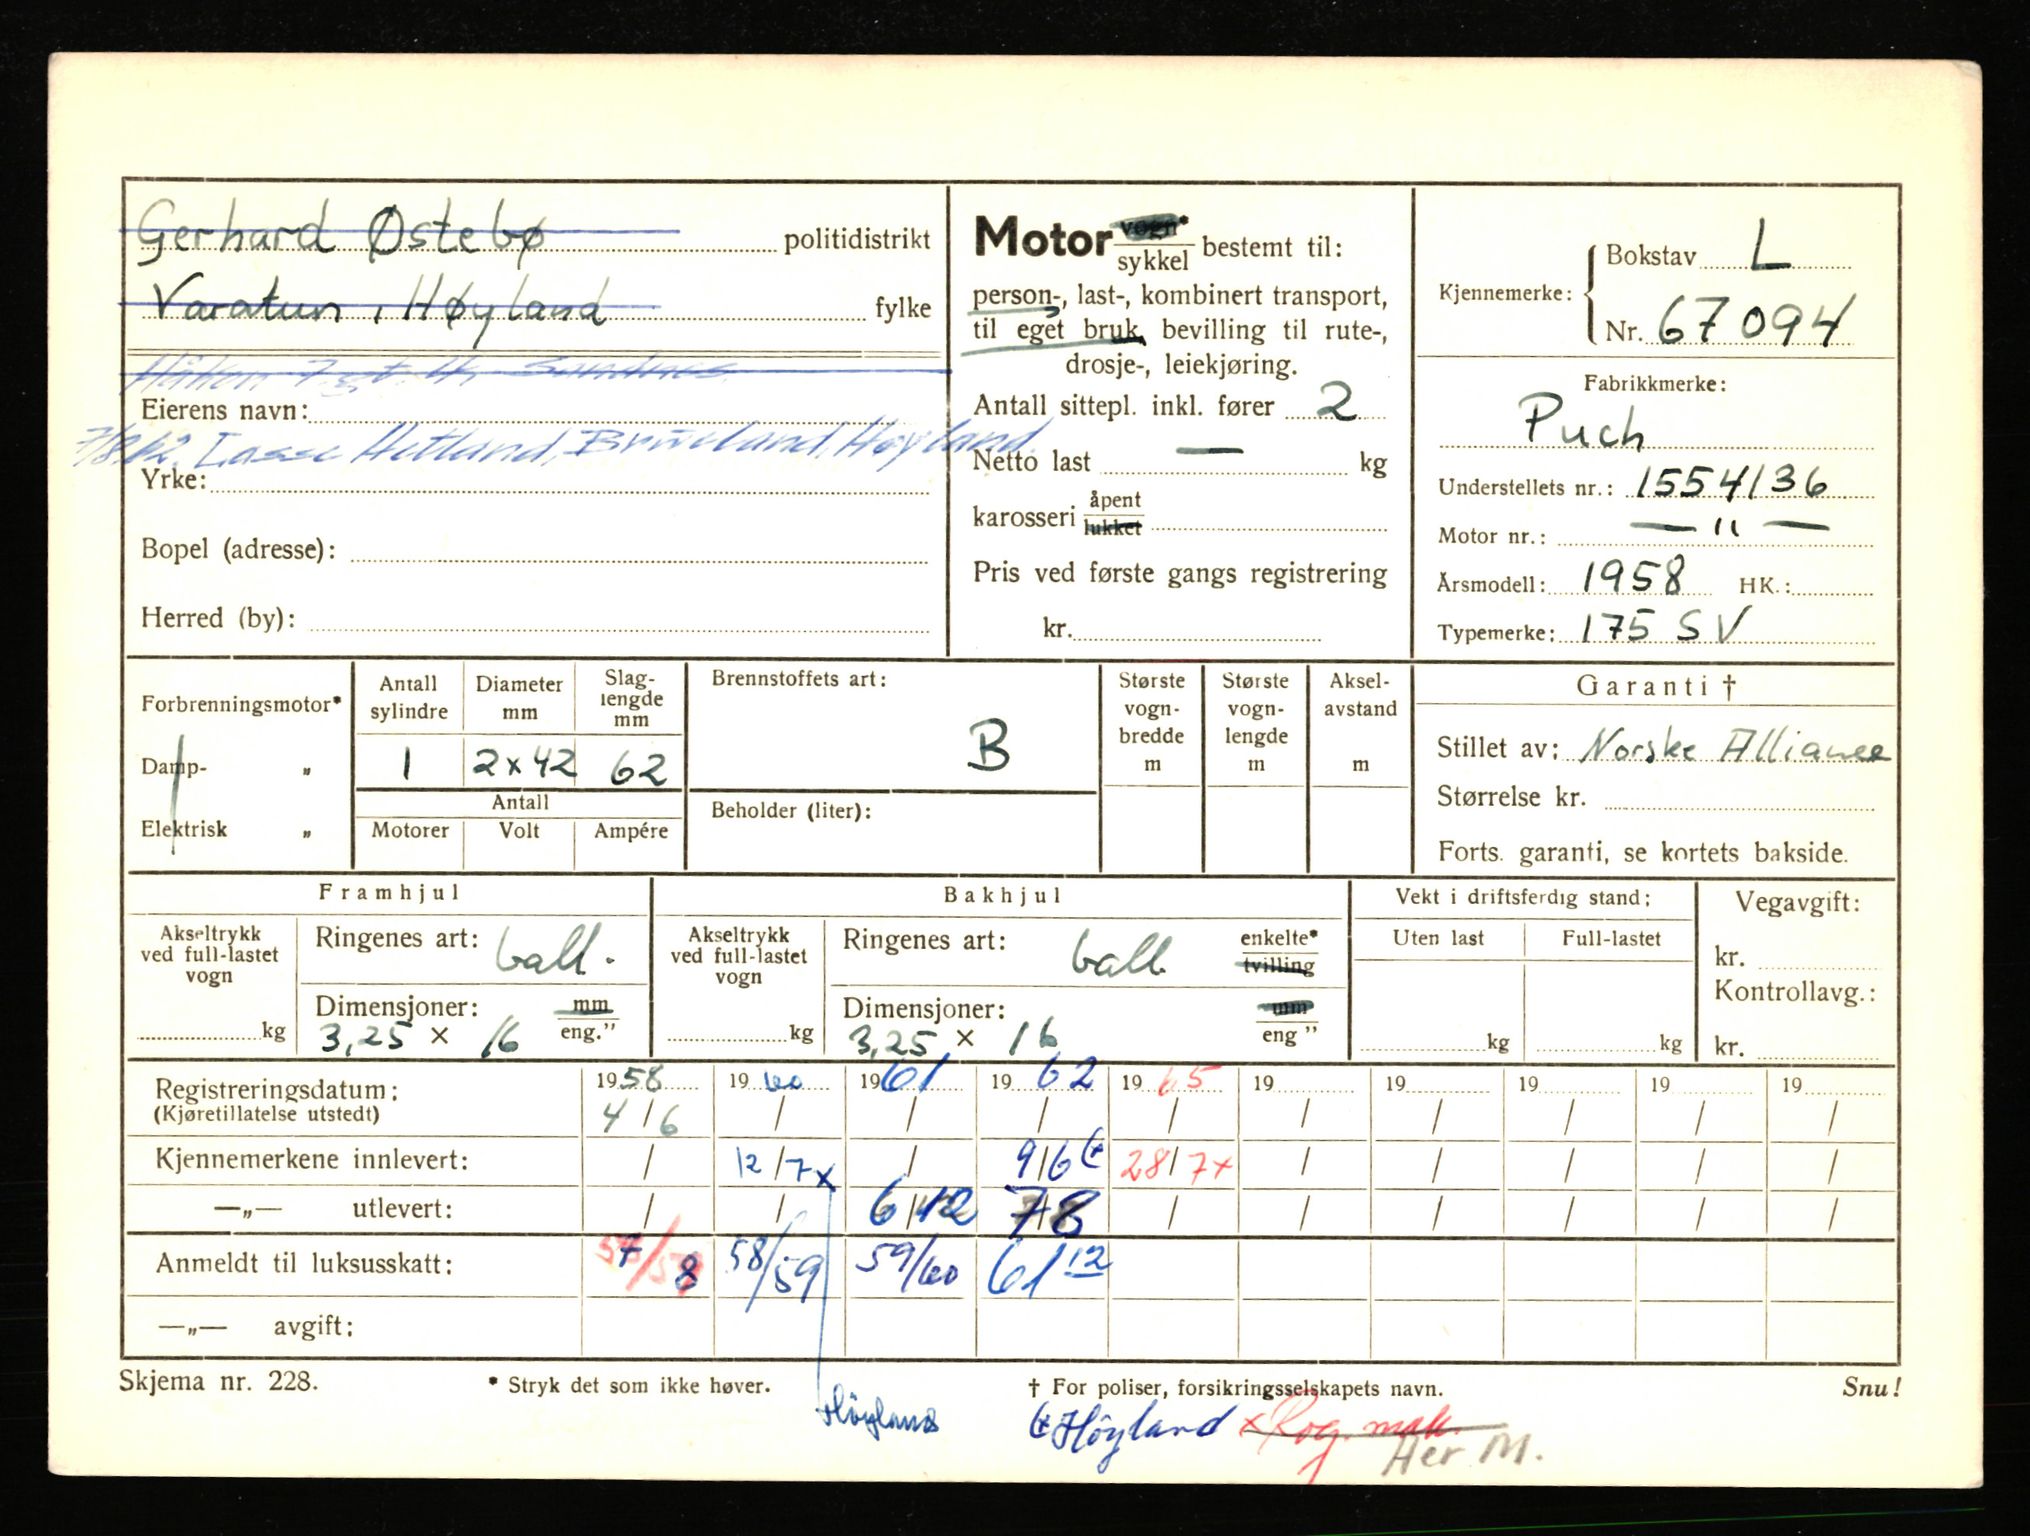 Gerhard Østebø politidistrikt
Varatun, Høyland fylke
Håkon Sandnes
Eierens navn:
7/8 62. Lasse Hetland, Brueland, Høyland.
Yrke:
Bopel (adresse):
Herred (by):
Motor vogn* / sykkel bestemt til:
person-, last-, kombinert transport,
til eget bruk, bevilling til rute-,
drosje-, leiekjøring.
Antall sittepl. inkl. fører 2
Netto last — kg
karosseri åpent / lukket
Pris ved første gangs registrering
kr.
Kjennemerke: { Bokstav L
Nr. 67094
Fabrikkmerke:
Puch
Understellets nr.: 1554136
Motor nr.: — " —
Årsmodell: 1958 HK.:
Typemerke: 175 SV
Forbrenningsmotor*
Damp- "
Elektrisk "
Antall sylindre 1
Diameter mm 2x42
Slag- lengde mm 62
Antall
Motorer Volt Ampére
Brennstoffets art:
B
Beholder (liter):
Største vogn- bredde m
Største vogn- lengde m
Aksel- avstand m
Garanti †
Stillet av: Norske Alliance
Størrelse kr.
Forts. garanti, se kortets bakside.
Framhjul
Akseltrykk ved full-lastet vogn
kg
Ringenes art: ball.
Dimensjoner: mm / eng."
3,25 x 16
Bakhjul
Akseltrykk ved full-lastet vogn
kg
Ringenes art: ball. enkelte* / tvilling
Dimensjoner: mm / eng "
3,25 x 16
Vekt i driftsferdig stand:
Uten last Full-lastet
kg kg
Vegavgift:
kr.
Kontrollavg.:
kr.
Registreringsdatum: 1958 1960 1961 1962 1965 19 19 19 19 19
(Kjøretillatelse utstedt) 4/6 / / / / / / / / /
Kjennemerkene innlevert: / 12/7x / 9/6 (x 28/7x / / / / /
—„— utlevert: / / 6/12 7/8 / / / / / /
Anmeldt til luksusskatt: 7/8 58/59 59/60 61 12
—„— avgift:
Skjema nr. 228. * Stryk det som ikke høver. † For poliser, forsikringsselskapets navn. Snu!
Höyland (x Höyland x Rog. mak.
Her M.